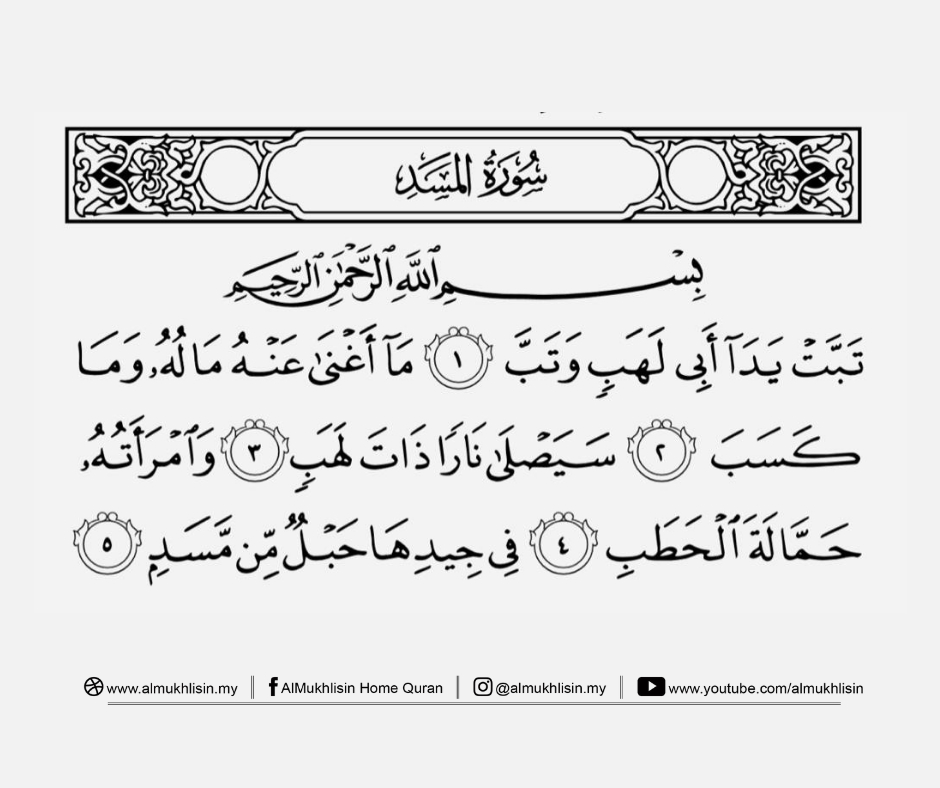 سُورَةُ المَسَدِ
بِسْمِ ٱللَّهِ ٱلرَّحْمَٰنِ ٱلرَّحِيمِ
تَبَّتْ يَدَآ أَبِى لَهَبٍۢ وَتَبَّ ١ مَآ أَغْنَىٰ عَنْهُ مَالُهُۥ وَمَا
كَسَبَ ٢ سَيَصْلَىٰ نَارًا ذَاتَ لَهَبٍۢ ٣ وَٱمْرَأَتُهُۥ
حَمَّالَةَ ٱلْحَطَبِ ٤ فِى جِيدِهَا حَبْلٌۭ مِّن مَّسَدٍۭ ٥
www.almukhlisin.my AlMukhlisin Home Quran @almukhlisin.my www.youtube.com/almukhlisin